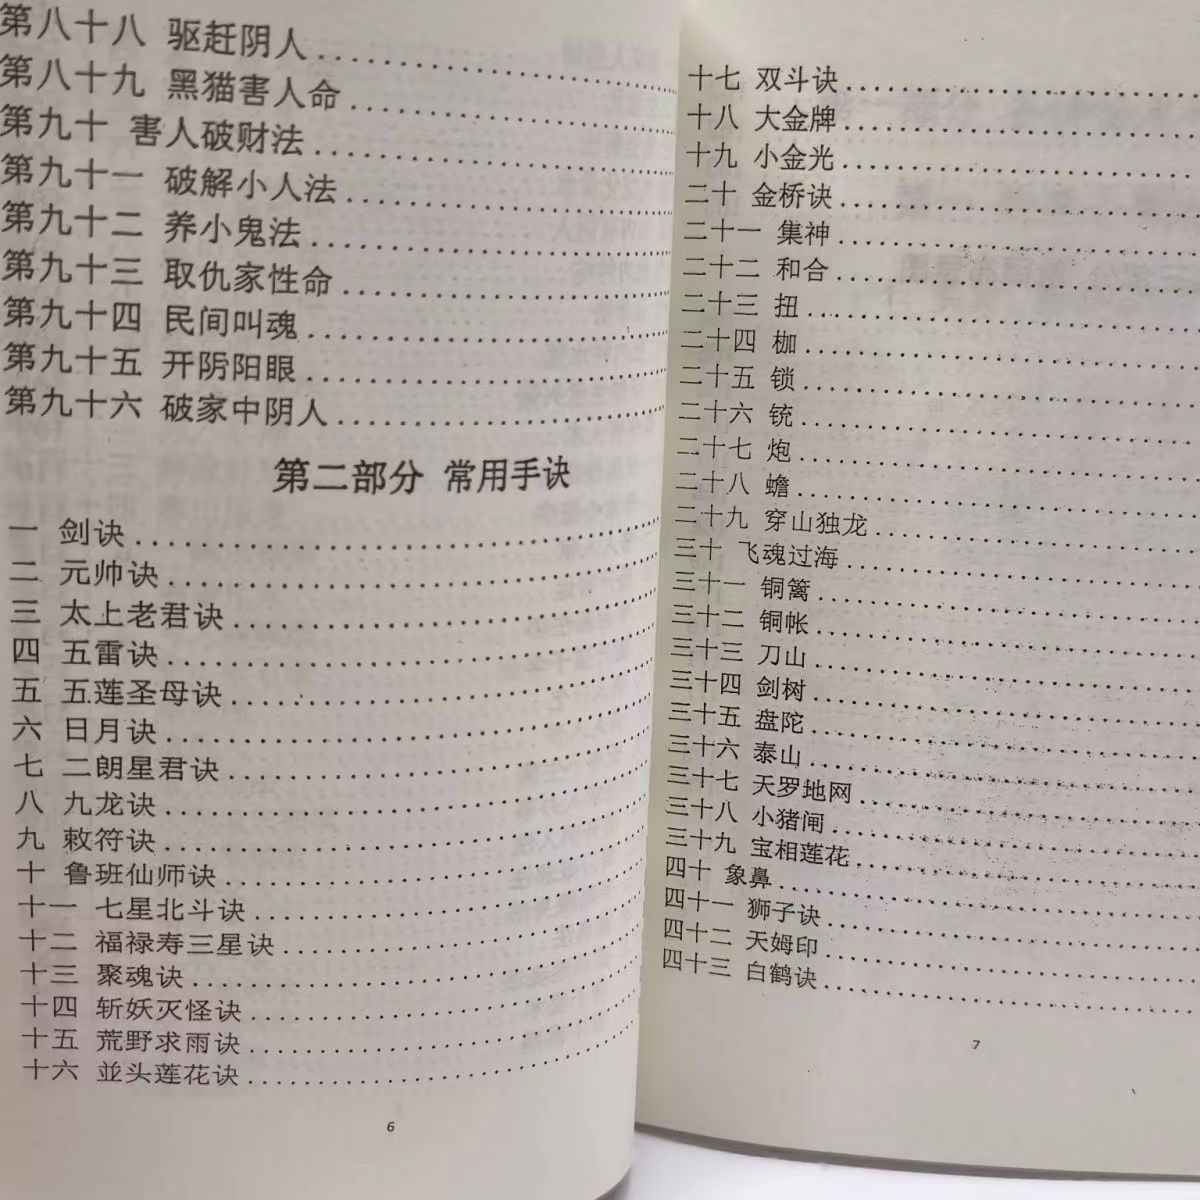 第八十八 驱赶阴人
第八十九 黑猫害人命
第九十 害人破财法
第九十一 破解小人法
第九十二 养小鬼法
第九十三 取仇家性命
第九十四 民间叫魂
第九十五 开阴阳眼
第九十六 破家中阴人
第二部分 常用手诀
一 剑诀
二 元帅诀
三 太上老君诀
四 五雷诀
五 五莲圣母诀
六 日月诀
七 二朗星君诀
八 九龙诀
九 敕符诀
十 鲁班仙师诀
十一 七星北斗诀
十二 福禄寿三星诀
十三 聚魂诀
十四 斩妖灭怪诀
十五 荒野求雨诀
十六 並头莲花诀
6
十七 双斗诀
十八 大金牌
十九 小金光
二十 金桥诀
二十一 集神
二十二 和合
二十三 扭
二十四 枷
二十五 锁
二十六 铳
二十七 炮
二十八 蟾
二十九 穿山独龙
三十 飞魂过海
三十一 铜篱
三十二 铜帐
三十三 刀山
三十四 剑树
三十五 盘陀
三十六 泰山
三十七 天罗地网
三十八 小猪闸
三十九 宝相莲花
四十 象鼻
四十一 狮子诀
四十二 天姆印
四十三 白鹤诀
7